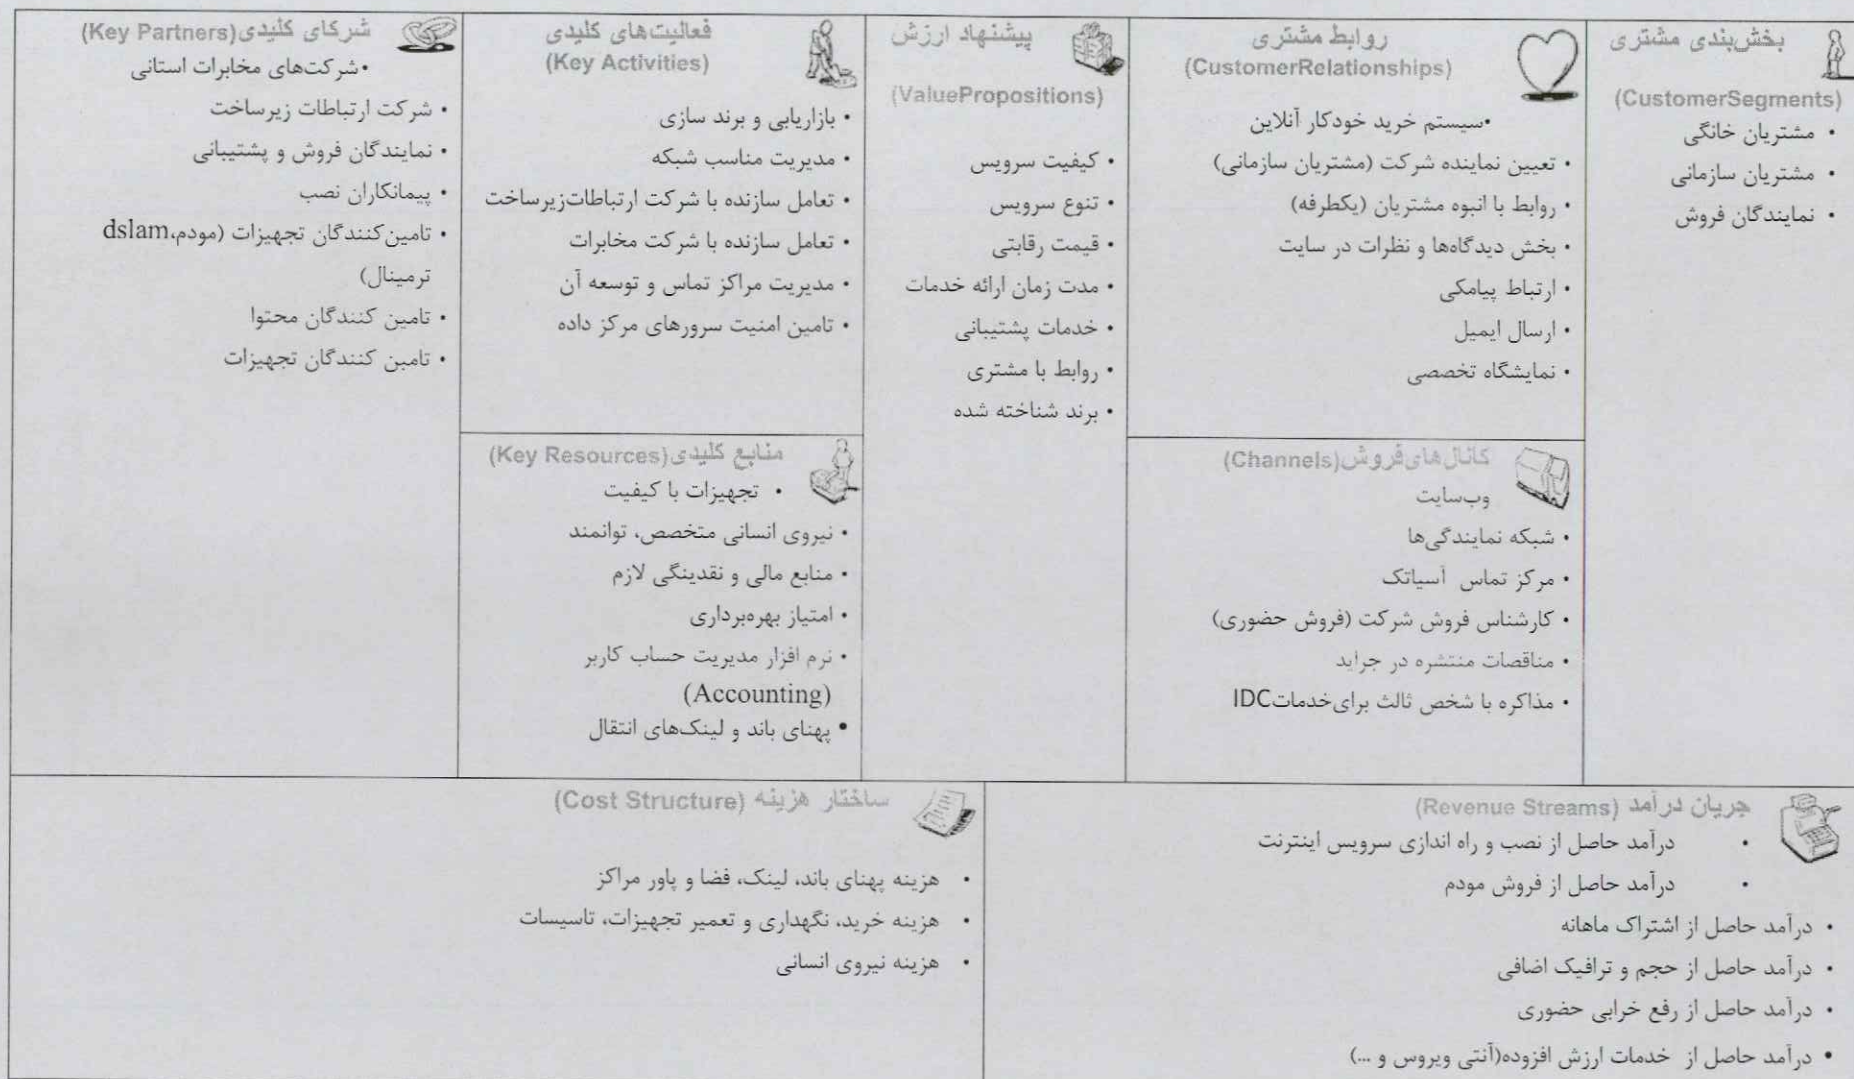 بخش‌بندی مشتری
(CustomerSegments)
• مشتریان خانگی
• مشتریان سازمانی
• نمایندگان فروش
روابط مشتری
(CustomerRelationships)
•سیستم خرید خودکار آنلاین
• تعیین نماینده شرکت (مشتریان سازمانی)
• روابط با انبوه مشتریان (یکطرفه)
• بخش دیدگاه‌ها و نظرات در سایت
• ارتباط پیامکی
• ارسال ایمیل
• نمایشگاه تخصصی
کانال‌های‌فروش(Channels)
وب‌سایت
• شبکه نمایندگی‌ها
• مرکز تماس آسیاتک
• کارشناس فروش شرکت (فروش حضوری)
• مناقصات منتشره در جراید
• مذاکره با شخص ثالث برای‌خدماتIDC
پیشنهاد ارزش
(ValuePropositions)
• کیفیت سرویس
• تنوع سرویس
• قیمت رقابتی
• مدت زمان ارائه خدمات
• خدمات پشتیبانی
• روابط با مشتری
• برند شناخته شده
فعالیت‌های کلیدی
(Key Activities)
• بازاریابی و برند سازی
• مدیریت مناسب شبکه
• تعامل سازنده با شرکت ارتباطات‌زیرساخت
• تعامل سازنده با شرکت مخابرات
• مدیریت مراکز تماس و توسعه آن
• تامین امنیت سرورهای مرکز داده
منابع کلیدی(Key Resources)
• تجهیزات با کیفیت
• نیروی انسانی متخصص، توانمند
• منابع مالی و نقدینگی لازم
• امتیاز بهره‌برداری
• نرم افزار مدیریت حساب کاربر
(Accounting)
• پهنای باند و لینک‌های انتقال
شرکای کلیدی(Key Partners)
•شرکت‌های مخابرات استانی
• شرکت ارتباطات زیرساخت
• نمایندگان فروش و پشتیبانی
• پیمانکاران نصب
• تامین‌کنندگان تجهیزات (مودم،dslam
ترمینال)
• تامین کنندگان محتوا
• تامبن کنندگان تجهیزات
جریان درآمد (Revenue Streams)
• درآمد حاصل از نصب و راه اندازی سرویس اینترنت
• درآمد حاصل از فروش مودم
• درآمد حاصل از اشتراک ماهانه
• درآمد حاصل از حجم و ترافیک اضافی
• درآمد حاصل از رفع خرابی حضوری
• درآمد حاصل از خدمات ارزش افزوده(آنتی ویروس و ...)
ساختار هزینه (Cost Structure)
• هزینه پهنای باند، لینک، فضا و پاور مراکز
• هزینه خرید، نگهداری و تعمیر تجهیزات، تاسیسات
• هزینه نیروی انسانی